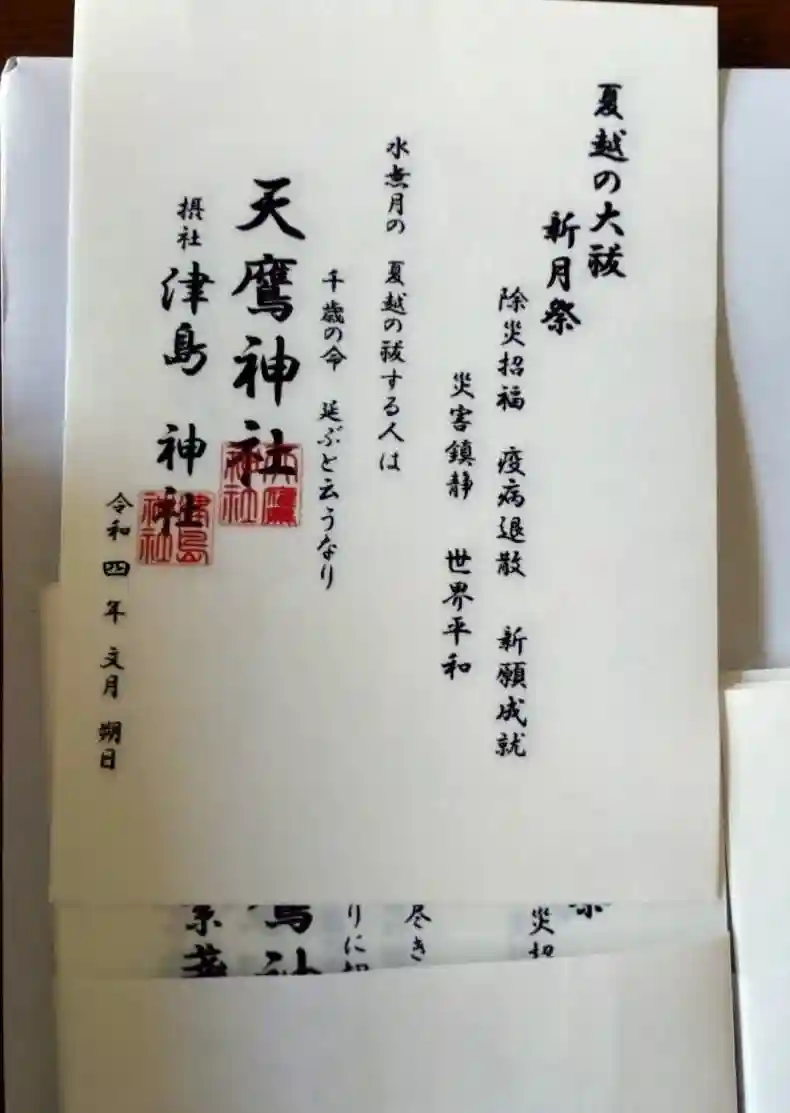 夏越の大祓
新月祭
除災招福 疫病退散 新願成就
災害鎮静 世界平和
水無月の 夏越の祓する人は
千歳の命 延ぶと云うなり
天鷹神社
天鷹神社
摂社 津島 神社
津島神社
令和四年 文月 朔日
災招
尽き
りに
神